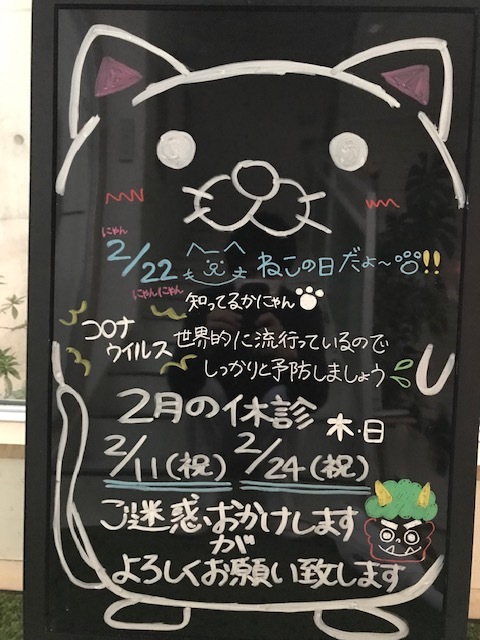 にゃん
2/22 ねこの日だよ〜!!
にゃんにゃん
知ってるかにゃん
コロナ
ウイルス
世界的に流行っているので
しっかりと予防しましょう
2月の休診 木・日
2/11(祝) 2/24(祝)
ご迷惑おかけします
が
よろしくお願い致します